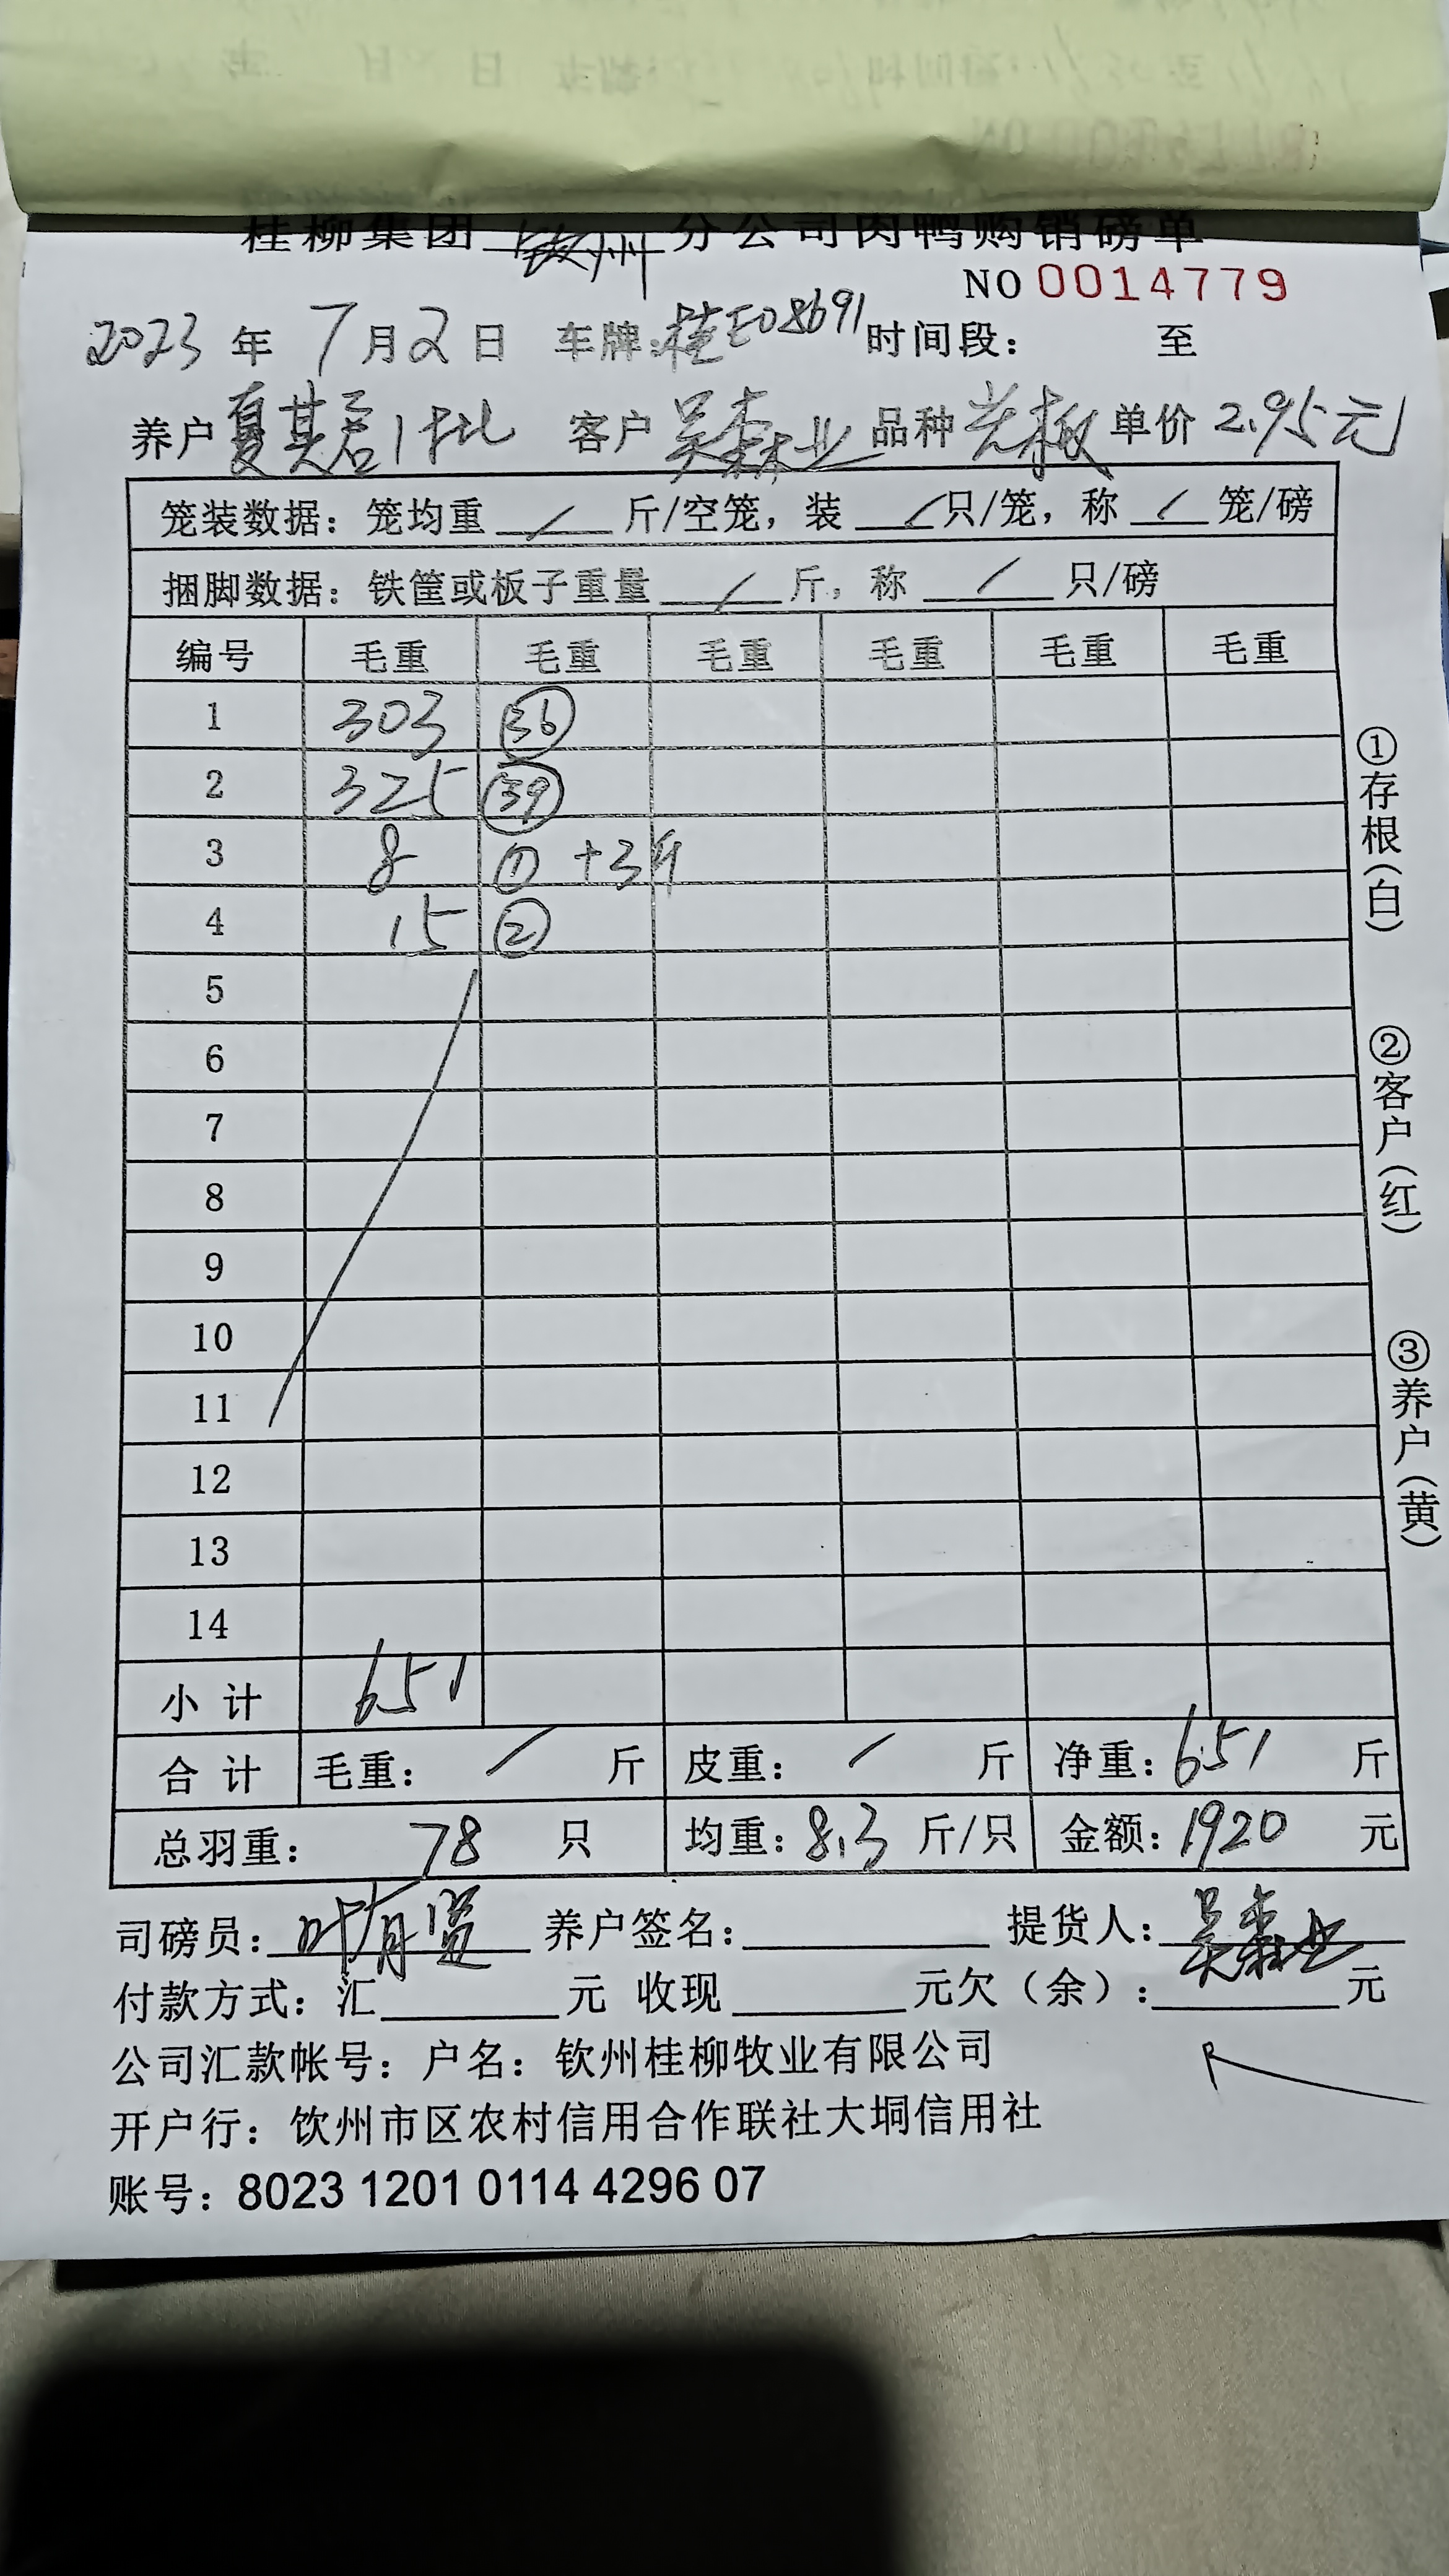 桂柳集团钦州分公司肉鸭购销磅单
NO 0014779
2023年7月2日 车牌:桂E08691 时间段: 至
养户 夏其君1批 客户 吴森业 品种 光板 单价 2.95元
笼装数据: 笼均重 / 斤/空笼, 装 / 只/笼, 称 / 笼/磅
捆脚数据: 铁筐或板子重量 / 斤, 称 / 只/磅
编号 毛重 毛重 毛重 毛重 毛重 毛重
1 303 36
2 325 39
3 8 ① +3斤
4 15 ②
5
6
7
8
9
10
11
12
13
14
小计 651
合计 毛重: / 斤 皮重: / 斤 净重: 651 斤
总羽重: 78 只 均重: 8.3 斤/只 金额: 1920 元
司磅员: 叶有贤 养户签名: 提货人: 吴森业
付款方式: 汇 元 收现 元欠(余): 元
公司汇款帐号: 户名: 钦州桂柳牧业有限公司
开户行: 饮州市区农村信用合作联社大垌信用社
账号: 8023 1201 0114 4296 07
①存根(白)
②客户(红)
③养户(黄)